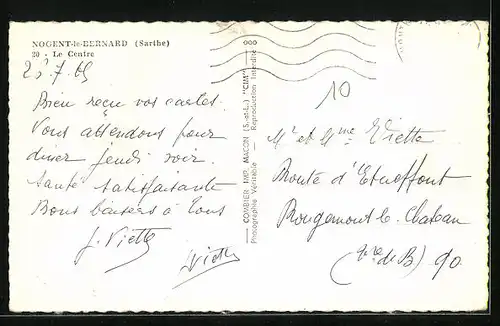 NOGENT-le-BERNARD (Sarthe)
20 - Le Centre
25.7.65
Bien reçu vos cartes.
Vous attendons pour
diner jeudi soir.
Santé satisfaisante
Bons baisers à tous
J. Viette
Viette
COMBIER IMP. MACON (S.-et-L.) "CIM"
Photographie Véritable - Reproduction Interdite
000
10
Mr et Mme Viette
Route d'Etueffont
Rougemont le Chateau
(Tre de B) 90